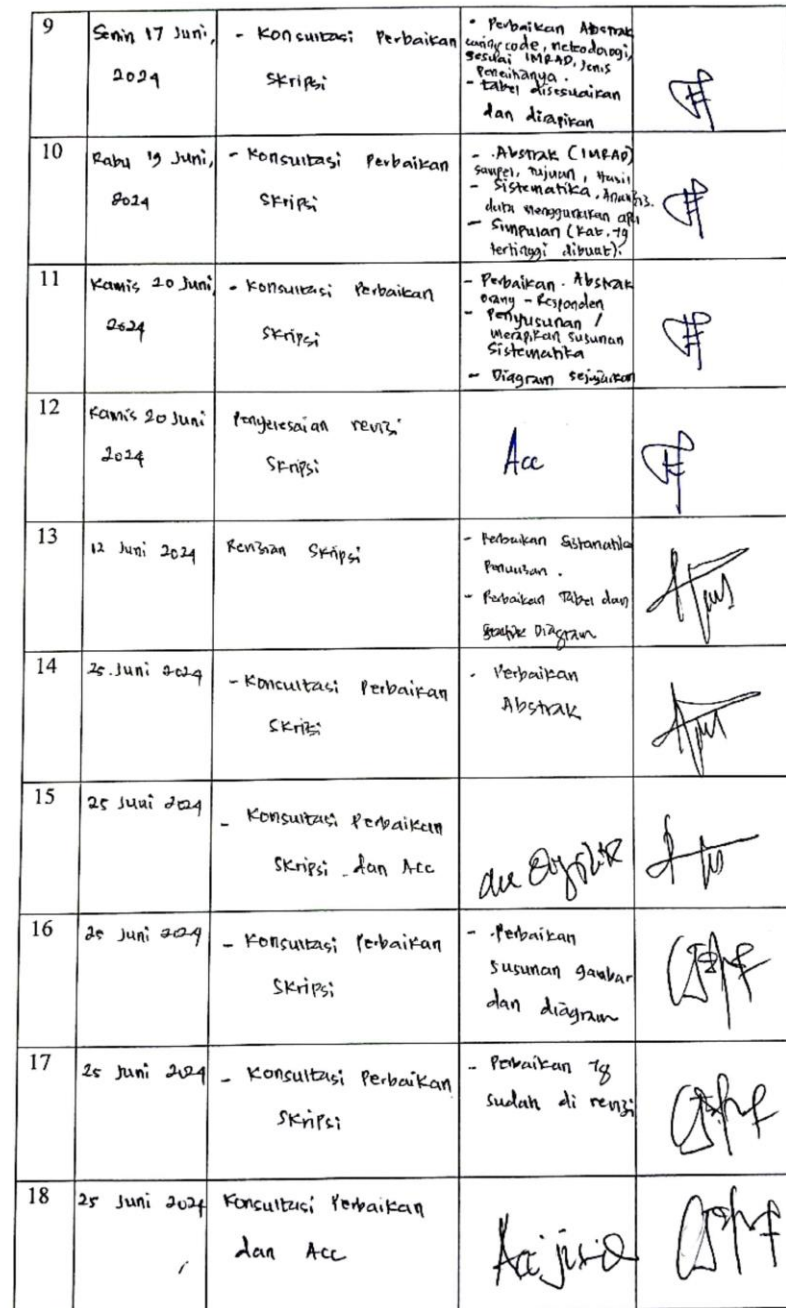 9
Senin 17 Juni,
2024
- Konsultasi Perbaikan
Skripsi
- Perbaikan Abstrak
code, metodologi,
sesuai IMRAD, Jenis
- tabel disesuaikan
dan dirapikan
10
Rabu 19 Juni,
2024
- Konsultasi Perbaikan
Skripsi
- Abstrak (IMRAD)
sampel, tujuan, Hasil
- Sistematika, Analisis
data menggunakan apa
- Simpulan (Kat. yg
tertinggi dibuat).
11
Kamis 20 Juni,
2024
- Konsultasi Perbaikan
Skripsi
- Perbaikan Abstrak
orang - Responden
- Penyusunan /
merapikan susunan
Sistematika
- Diagram sesuaikan
12
Kamis 20 Juni
2024
Penyelesaian revisi
Skripsi
Acc
13
12 Juni 2024
Revisian Skripsi
- Perbaikan Sistematika
Penulisan.
- Perbaikan Tabel dan
Diagram
14
25 Juni 2024
- Konsultasi Perbaikan
Skripsi
- Perbaikan
Abstrak
15
25 Juni 2024
- Konsultasi Perbaikan
Skripsi dan Acc
16
25 Juni 2024
- Konsultasi Perbaikan
Skripsi
- Perbaikan
susunan gambar
dan diagram
17
25 Juni 2024
- Konsultasi Perbaikan
Skripsi
- Perbaikan yg
sudah di revisi
18
25 Juni 2024
Konsultasi Perbaikan
dan Acc
Acc